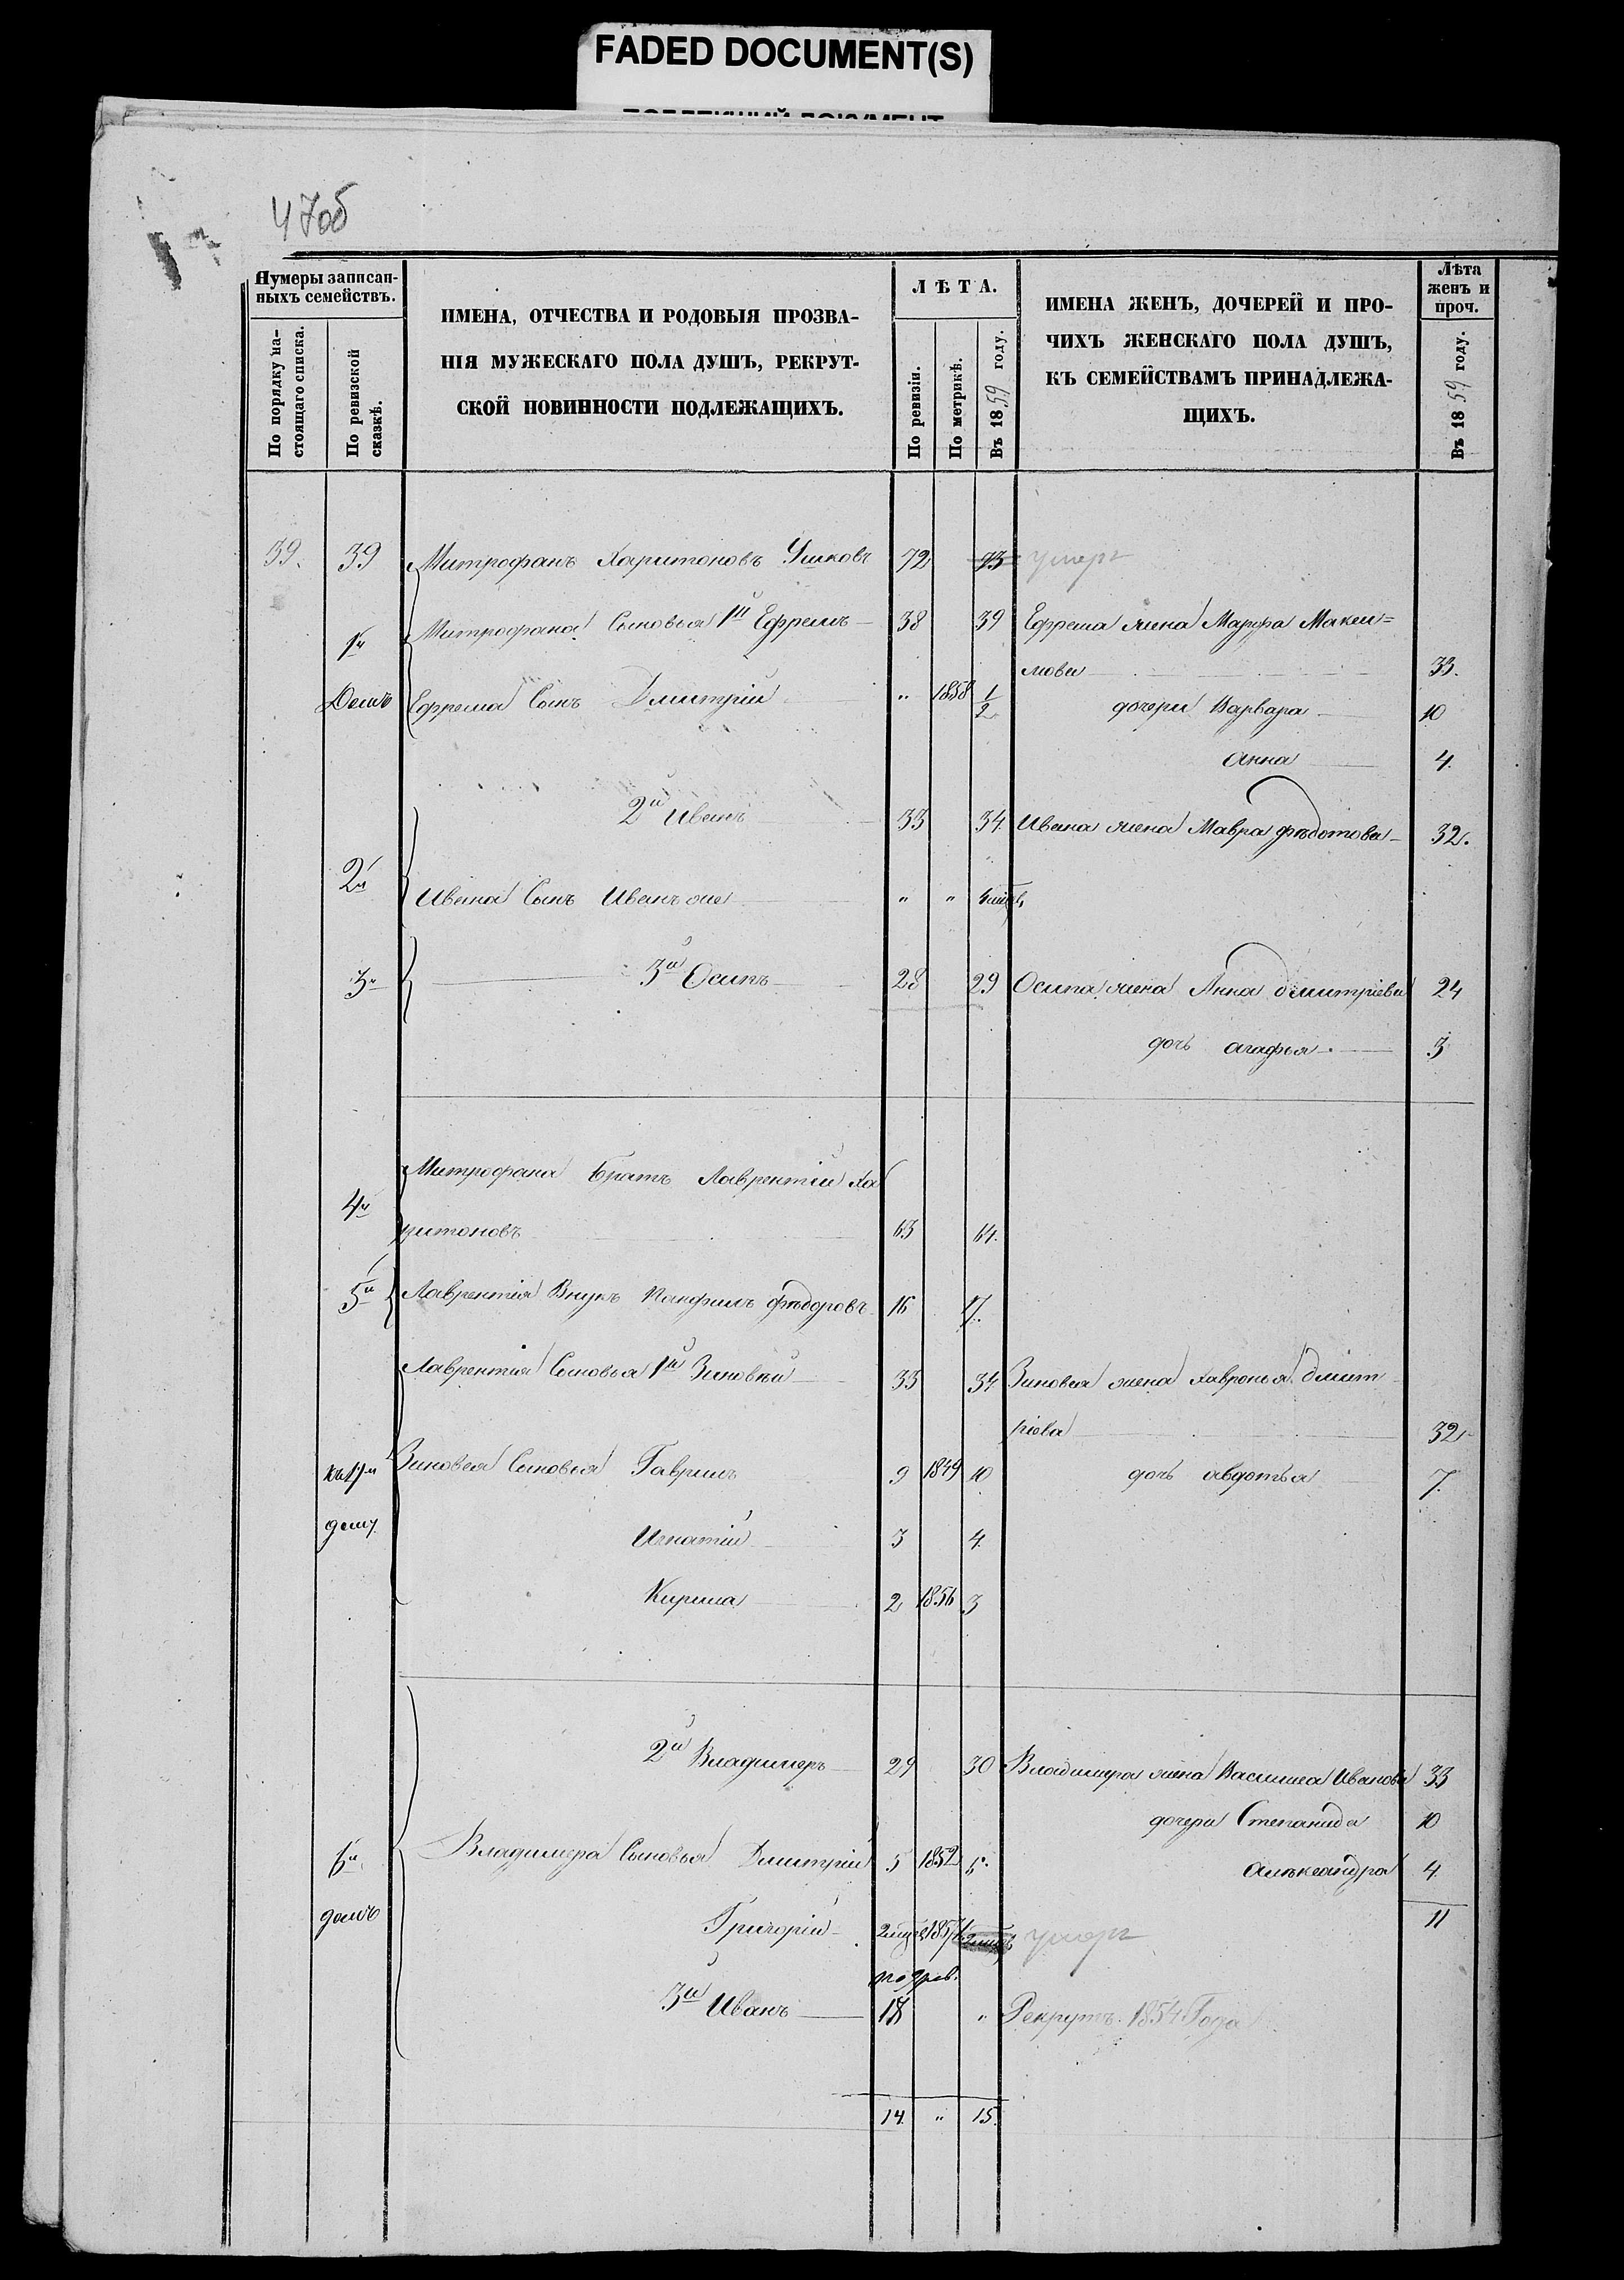 FADED DOCUMENT(S)
47об
Нумеры записан-
ныхъ семействъ.
По порядку на-
стоящаго списка.
По ревизской
сказкѣ.
ИМЕНА, ОТЧЕСТВА И РОДОВЫЯ ПРОЗВА-
НІЯ МУЖЕСКАГО ПОЛА ДУШЪ, РЕКРУТ-
СКОЙ ПОВИННОСТИ ПОДЛЕЖАЩИХЪ.
ЛѢТА.
По ревизіи.
По метрикѣ.
Въ 1859 году.
ИМЕНА ЖЕНЪ, ДОЧЕРЕЙ И ПРО-
ЧИХЪ ЖЕНСКАГО ПОЛА ДУШЪ,
КЪ СЕМЕЙСТВАМЪ ПРИНАДЛЕЖА-
ЩИХЪ.
Лѣта
женъ и
проч.
Въ 1859 году.
39. 39 Митрофанъ Харитоновъ Ушковъ 72 73 умеръ
1й Митрофана Сыновья 1й Ефремъ 38 39 Ефрема жена Марфа Макси=
мова 33.
Домъ Ефрема Сынъ Дмитрій " 1858 1/2 дочери Варвара 10
Анна 4.
2й Иванъ 33 34. Ивана жена Мавра фѣдотова 32.
2й
Ивана Сынъ Иванъ же " "
3й 3й Осипъ 28 29 Осипа жена Анна дмитріева 24
дочь агафья 3
Митрофана братъ Лаврентій Ха
4й
ритоновъ 63 64.
5й Лаврентія Внукъ Панфилъ фѣдоровъ 16 17.
Лаврентія Сыновья 1й Зиновѣй 33 34 Зиновея жена Хавронья дмит
ріева 32
Зиновея Сыновья Гаврилъ 9 1849 10 дочь авдотья 7.
дому
Игнатій 3 4.
Кирила 2 1856 3
2й Владимеръ 29 30 Владимера жена Василиса Иванова 33
дочери Степанида 10
Владимера Сыновья Дмитрій 5 1852 5. алѣксандра 4.
домъ 11
Григорій умеръ
3й Иванъ 18 " Рекрутъ 1854 Года
14. " 15.